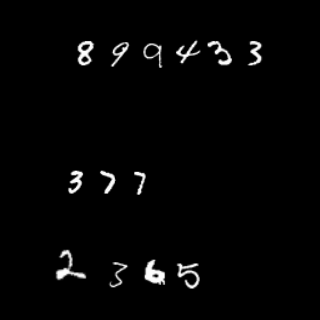 899433
377
2365